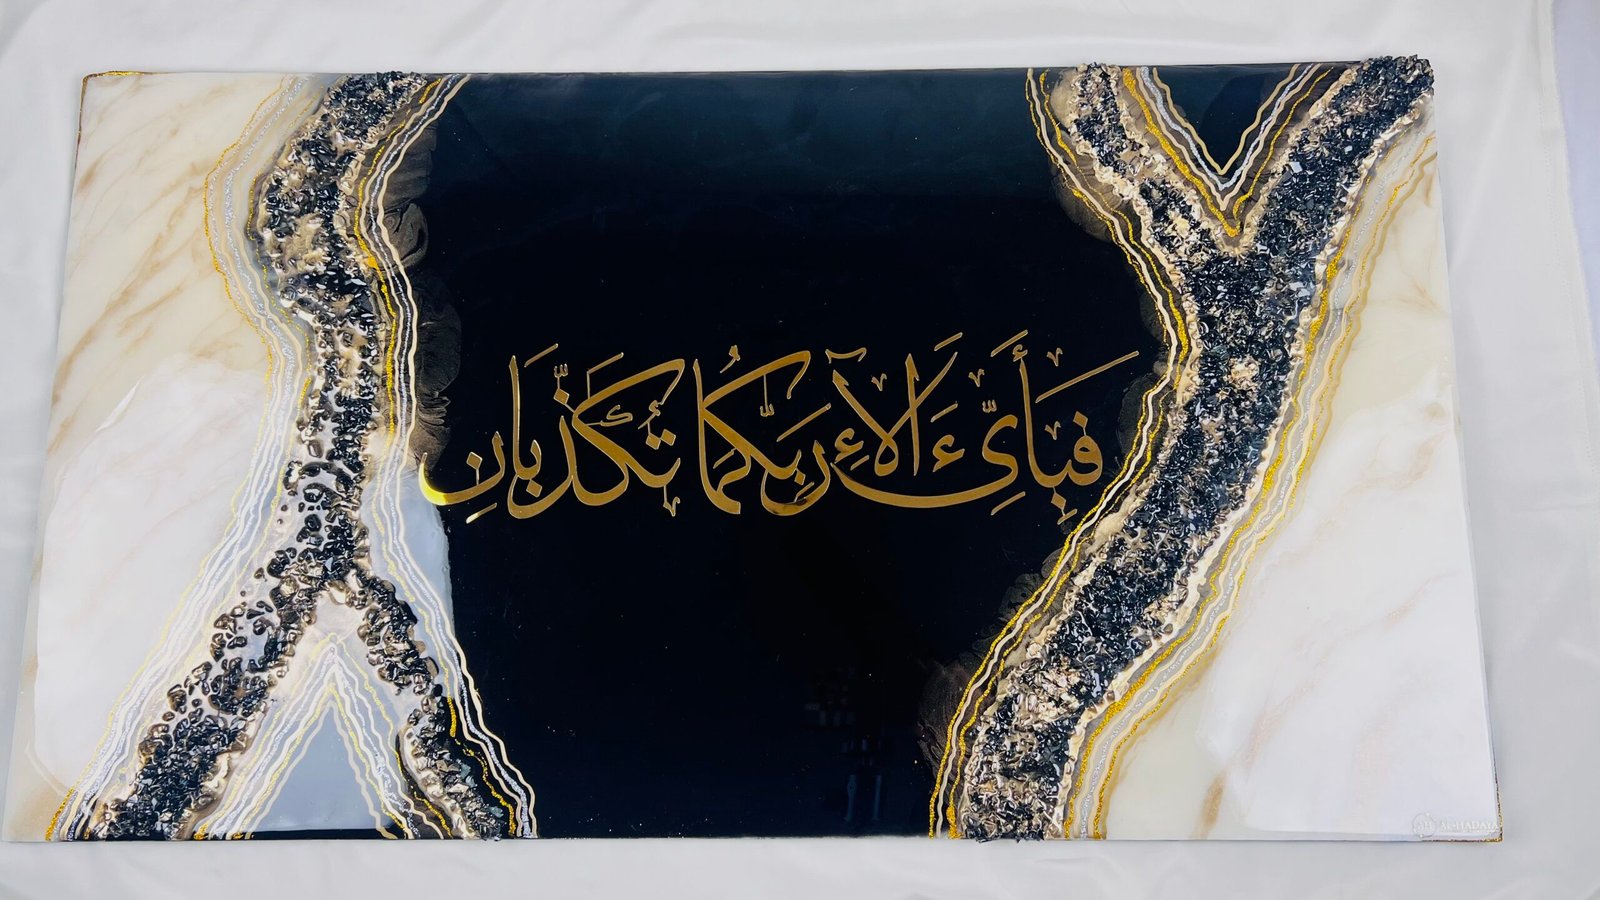 فَبِأَىِّ ءَالَآءِ رَبِّكُمَا تُكَذِّبَانِ
ALHADAYA